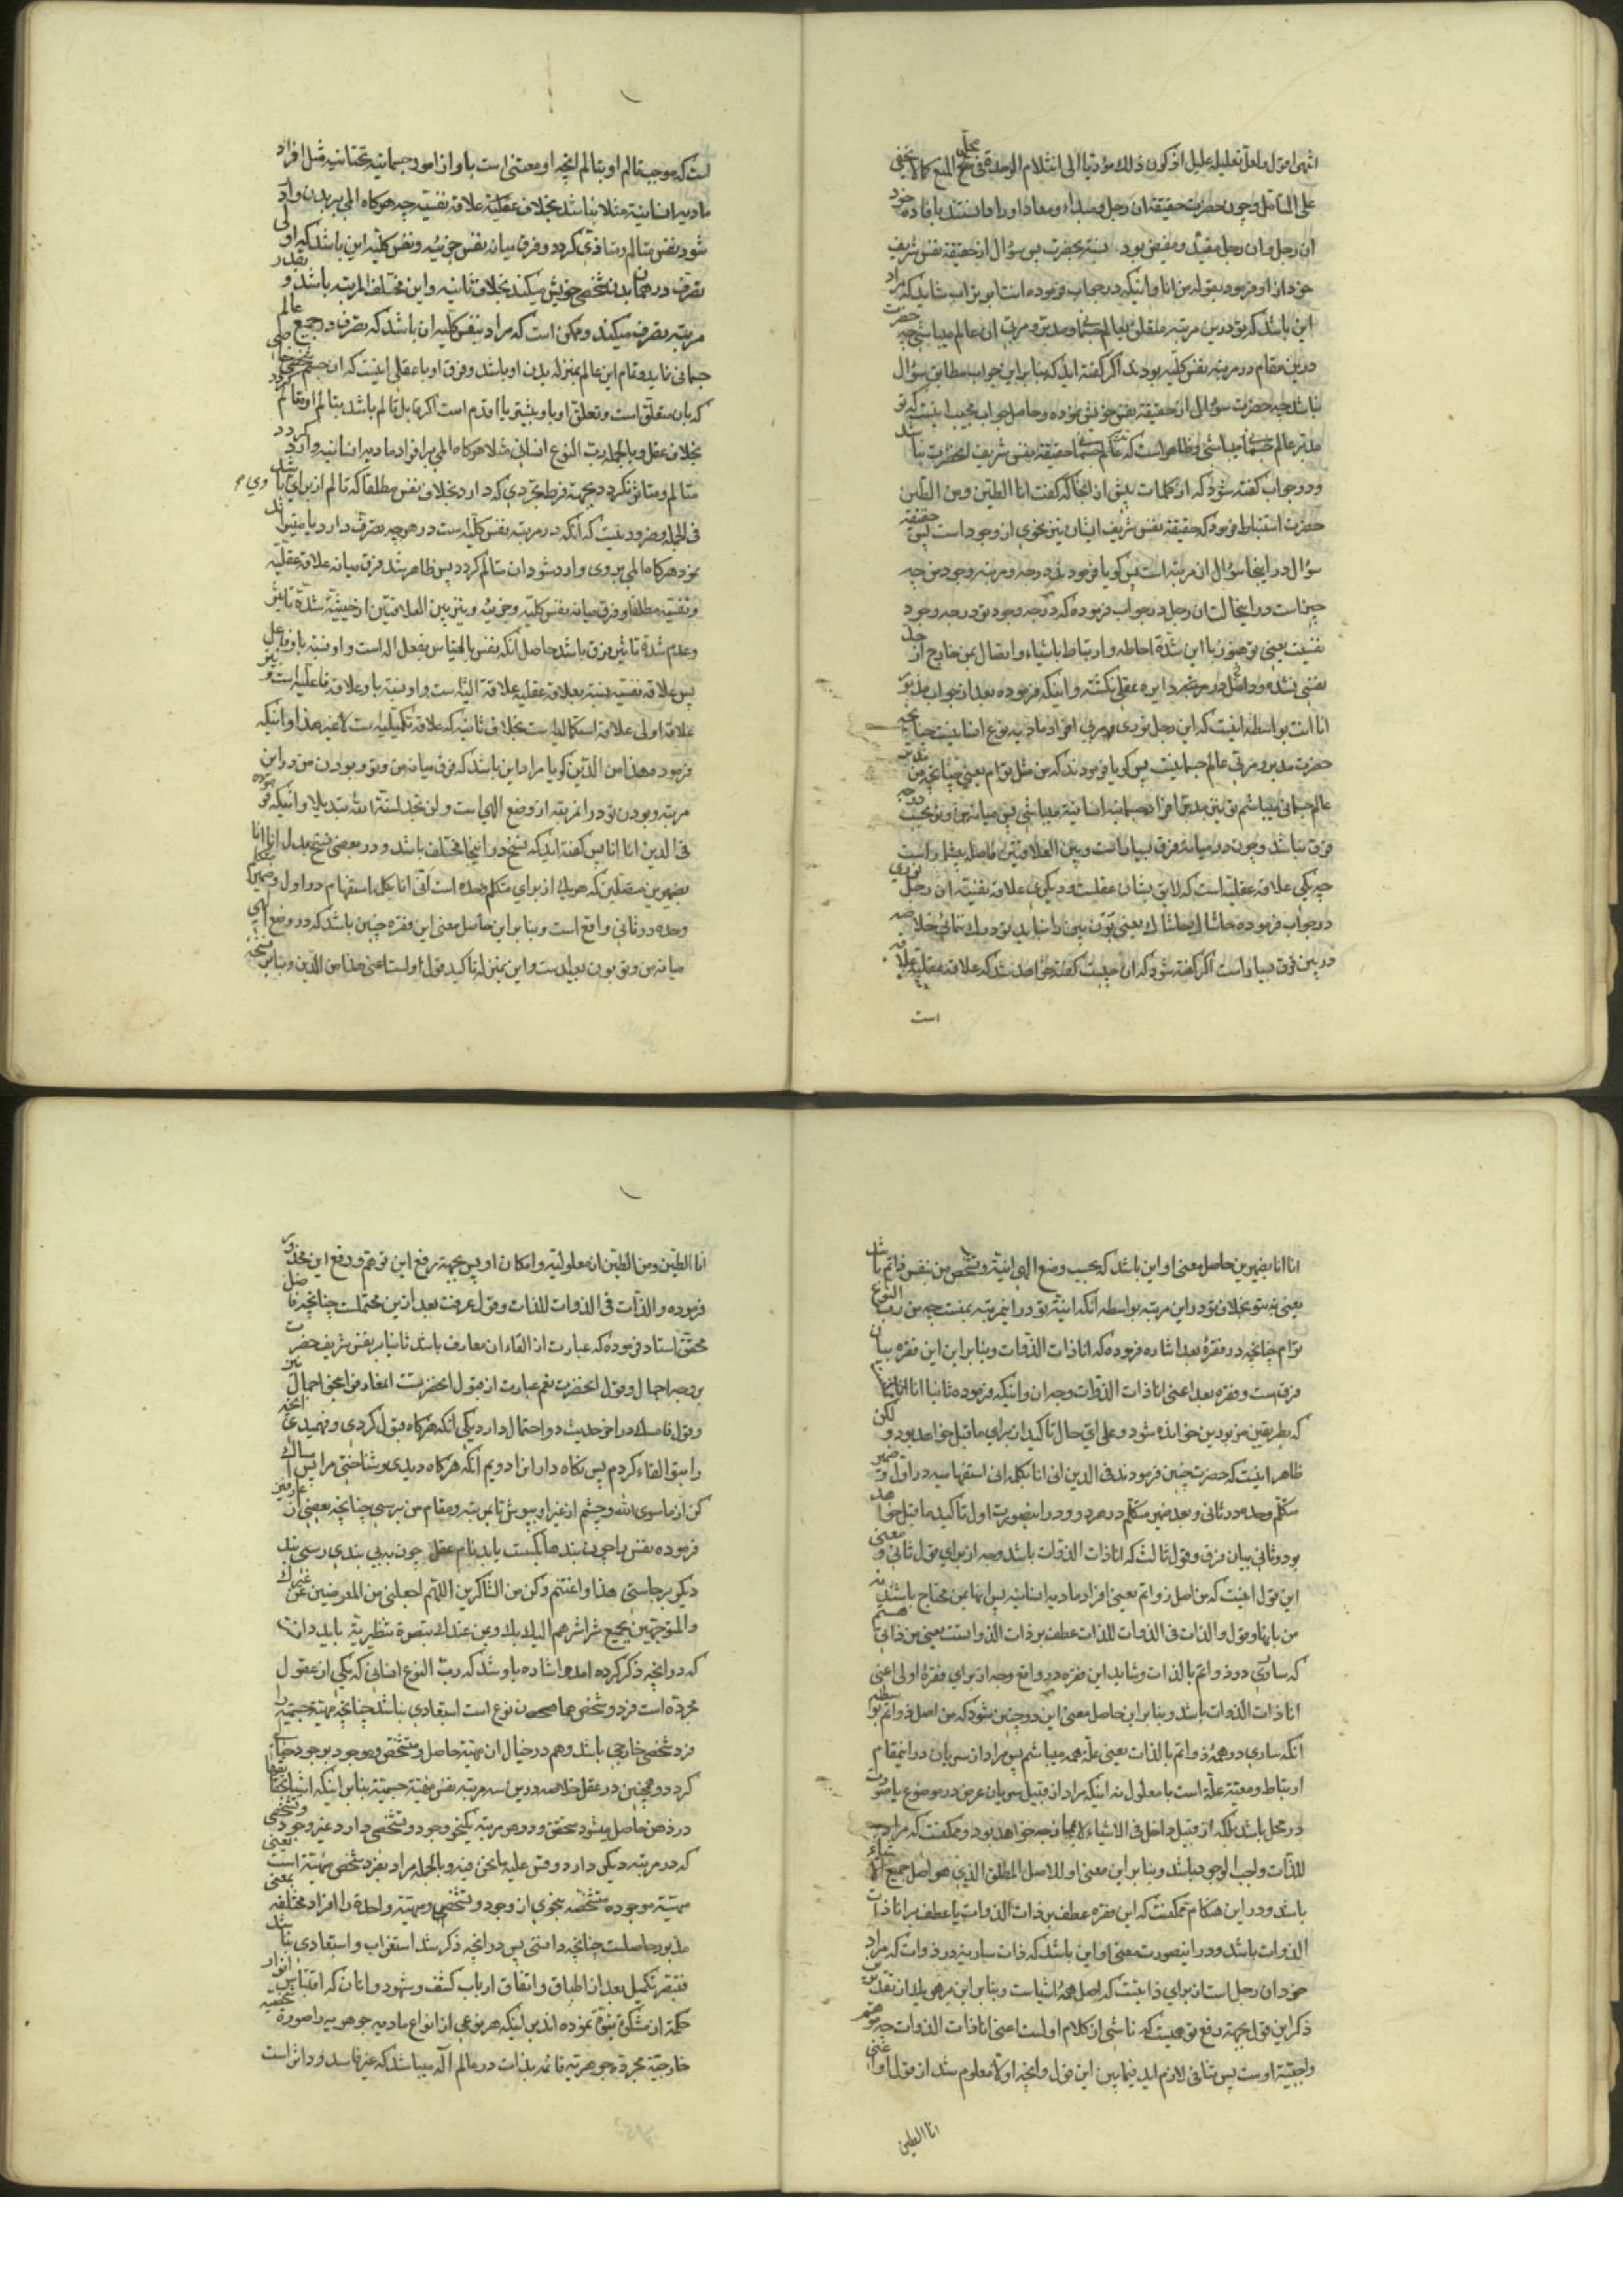 انتهی اقول ولعل تعلیله علیل اذ کون ذلك مؤدیا الی انثلام الوحدة فی محل المنع کمالا یخفی
علی المتأمل وچون حضرت حقیقة ان رجل ومبداء ومعاد او را دانستند بافاده خود
ان رجل وان رجل مقید ومفیض بود نسبة بحضرت پس سؤال از حقیقة نفس شریف
خود از او فرمود بقوله من انا واینکه در جواب فرموده انت ابو تراب شاید که مراد
این باشد که تو درین مرتبه متعلق بعالم جسمانی ومدبر ومربی ان عالم میباشی چه حضرت
درین مقام در مرتبه نفس کلیه بودند اگر گفته اید که بنا بر این جواب مطابق سؤال
نباشد چه حضرت سؤال از حقیقة نفس خویش نموده وحاصل جواب مجیب اینست که تو
مدبر عالم جسمانی میباشی وظاهر است که عالم جسمانی حقیقة نفس شریف حضرت نباشد
ودر جواب گفته شود که از کلمات پیش از اینجا که گفت انا الطین ومن الطین
حضرت استنباط فرمود که حقیقة نفس شریف ایشان نیز نحوی از وجود است پس حقیقة
سؤال در اینجا سؤال از مرتبه است پس گویا فرمودند که درجه ومرتبه وجود من چه
چیز است ودر اینحالت ان رجل در جواب فرموده که درجه وجود تو درجه وجود
نفسیست یعنی تو هنوز با این شدة احاطه وارتباط باشیاء واتصال بمن خارج از حد
نفسی نشده وداخل در دایره عقلی نگشته واینکه فرموده بعد از جواب مذبور
انا انت بواسطه اینست که این رجل نوری ومربی افراد مادیه نوع انسانیست چنانچه
حضرت مدبر ومربی عالم جسمانیست پس گویا فرمودند که من مثل توام یعنی چنانچه من مدبر
عالم جسمانی میباشم تو نیز مدبر افراد جسمانیه انسانیه میباشی پس میانه من وتو بحسب درجه
فرق نباشد وچون در میانه فرق بسیار است وبین العلاقتین فاصله بیشمار است
چه یکی علاقه عقلیه است که لایق بشان عقلست ودیگری علاقه نفسیه ان رجل نوری
در جواب فرموده حاشاك حاشاك یعنی تو من ودر بین فرق بسیار است
اگر گفته شود که ان چیست گفته خواهد شد که علاقه عقلیه علاقه
است
است که موجب تالم او بتالم انچه او معتنی است باو از امور جسمانیه تحتانیه مثل افراد
مادیه انسانیه مثلا نباشد بخلاف علاقه نفسیه چه هرگاه المی بر بدن وارد
شود نفس متالم ومتاذی گردد وفرق میانه نفس جزئیه ونفس کلیه این باشد که اولی
تصرف در همان بدن شخصی خویش میکند بخلاف ثانیه واین مختلف المرتبه باشد وبقدر
مرتبه تصرف میکند وممکن است که مراد بنفس کلیه ان باشد که تصرف در جمیع عالم
جسمانی نماید وتمام این عالم بمنزله بدن او باشد وفرق او با عقلی اینست که ان جسم شخصی خاصی
که بان متعلق است وتعلق او باو بیشتر یا اقدم است اگر قابل تالم باشد بتالم او متالم گردد
بخلاف عقل وبالجمله رب النوع انسانی مثلا هرگاه المی بر افراد مادیه انسانیه وارد گردد
متالم ومتاثر نگردد بجهة فرط تجردی که دارد بخلاف نفس مطلقا که تالم از برای وی
فی الجمله ضرور نیست که انکه در مرتبه نفس کلیه است در هر چه تصرف دارد
هرگاه المی بر وی وارد شود ان متالم گردد پس ظاهر شد فرق میانه علاقه عقلیه
ونفسیه مطلقا وفرق میانه نفس کلیه وجزئیه ونیز بین العلاقتین از حیثیة شدة تاثیر
وعدم شدة تاثیر فرق باشد حاصل انکه نفس بالقیاس بفعل اله است واو نسبة باو فاعل
پس علاقه نفسیه نسبة بعلاقه عقلیه علاقه الیه است واو نسبة باو علاقه فاعلیه است ونیز
علاقه اولی علاقه استکمالیه است بخلاف ثانیه که علاقه تکمیلیه است لا غیر هذا واینکه
فرموده هذا من الدین گویا مراد این باشد که فرق میانه من وتو وبودن من در این
مرتبه وبودن تو در انمرتبه از وضع الهی است ولن تجد لسنة الله تبدیلا واینکه فرموده
فی الدین انا انا پس گفته اید که نسخ در اینجا مختلف باشد ودر بعضی نسخ بدل انا انا
بضمیرین منفصلین که هریك از برای متکلم وحده است انی انا بکلمه استفهام در اول وضمیر متکلم
وحده در ثانی واقع است وبنا بر این حاصل معنی این فقره چنین باشد که در وضع الهی
میانه من وتو بون بعید است واین بمنزله تاکید قول اولست اعنی هذا من الدین وبنا بر نسخه
انا انا بضمیرین حاصل معنی او این باشد که بحسب وضع الهی انیة وتشخص من بنفس ذاتم باشد
یعنی نه بتو بخلاف تو در این مرتبه بواسطه انکه انیة تو در اینمرتبه بمنست چه من رب النوع
توام چنانچه در فقره بعد اشاره فرموده که انا ذات الذوات وبنا بر این این فقره بیان
فرقست وفقره بعد اعنی انا ذات الذوات وجه ان واینکه فرموده ثانیا انا انا
که بطریقین مزبورین خوانده شود وعلی ای حال تاکید از برای ماقبل خواهد بود ولکن
ظاهر اینست که حضرت چنین فرمودند فی الدین انی انا بکلمه انی استفهامیه در اول وضمیر
متکلم وحده در ثانی وبعد ضمیر متکلم در هر دو ودر اینصورت اول تاکید ماقبل خواهد
بود وثانی بیان فرق وقول ثالث که انا ذات الذوات باشد وجه از برای قول ثانی ومعنی
این قول اینست که من اصل ذواتم یعنی افراد مادیه انسانیه پس انها بمن محتاج باشند نه
من بانها وقول والذات فی الذوات للذات عطف بر ذات الذواتست یعنی من ذاتی هستم
که ساری در ذواتم بالذات وشاید این فقره در واقع وجه از برای فقره اولی اعنی
انا ذات الذوات باشد وبنا بر این حاصل معنی این دو چنین شود که من اصل ذواتم بواسطه
انکه ساری در همه ذواتم بالذات یعنی علة همه میباشم پس مراد از سریان در اینمقام
ارتباط ومعیة علة است با معلول نه اینکه مراد از قبیل سریان عرض در موضوع یا صورت
در محل باشد بلکه از قبیل داخل فی الاشیاء لا بالممازجه خواهد بود وممکنست که مراد
للذات واجب الوجود باشد وبنا بر این معنی او للاصل المطلق الذی هو اصل جمیع الاشیاء
باشد ودر این هنگام ممکنست که این فقره عطف بر ذات الذوات یا عطف بر انا ذات
الذوات باشد ودر اینصورت معنی او این باشد که ذات ساریه در ذوات که مراد
خود ان رجل است از برای ذاتیست که اصل همه اشیاست وبنا بر این
ذکر این قول بجهة دفع توهمیست که ناشی از کلام اولست اعنی انا ذات الذوات چه موهم
واجبیة اوست پس تنافی لازم اید فیما بین این قول وانچه اولا معلوم شد از قول او اعنی
انا الطین
انا الطین ومن الطین از معلولیة وامکان او پس بجهة رفع این توهم ودفع این محذور
فرموده والذات فی الذوات للذات وقول عرفت بعد ازین محتملست چنانچه فاضل
محقق استاد فرموده که عبارت از القاء ان معارف باشد ثانیا بر نفس شریف حضرت
بر وجه اجمال وقول انحضرت نعم عبارت از قبول انحضرتست
وقول فامسك در اخر حدیث دو احتمال دارد یکی انکه هرگاه قبول کردی وفهمیدی انچه
را بتو القاء کردم پس نگاه دار انرا دویم انکه هرگاه دیدی وشناختی مرا پس امساك
کن از ماسوی الله وچشم از غیر او بپوش تا بمرتبه ومقام من برسی چنانچه بعضی از عارفین
فرموده نفس را چون بندها بگسست یابد نام عقل چون به بی بندی رسی بند
دیگر برجاستی هذا واغتنم وکن من الشاکرین اللهم اجعلنی من المعرضین عن غیرك
والمتوجهین بجمیع شراشرهم الیك
که در انچه ذکر کرده امد واشاره باو شد که رب النوع انسانی که یکی از عقول
مجرده است فرد وشخص همان نوع است استبعادی نباشد چنانچه مهیة جسمیه را
فرد شخصی خارجی باشد وهم در خیال ان مهیة حاصل ومتشخص وموجود بوجود خیالی
گردد وهمچنین در عقل خلاصه درین سه مرتبه نفس مهیة جسمیة بنا بر اینکه اشیاء بانفسها
در ذهن حاصل میشود متحقق ودر هر مرتبه یکنحو وجود وتشخصی دارد غیر وجود وتشخصی
که در مرتبه دیگر دارد وقس علیه ما نحن فیه وبالجمله مراد بفرد شخص مهیتة است یعنی
مهیة موجوده متشخصه بنحوی از وجود وتشخص ومهیة واحدة را افراد مختلفه بمعنی
مذبور حاصلست چنانچه دانستی پس در انچه ذکر شد استغراب واستبعادی نباشد
فتبصر تکمیل بعد از اطباق واتفاق ارباب کشف وشهود وانان که اقتباس انوار
حکمة از مشکوة نبوة نموده اند بر اینکه هر نوعی از انواع مادیه جوهریه را صورة
خارجیة مجردة جوهریة قائمه بذات در عالم اله میباشد که غیر فاسد وداثر است